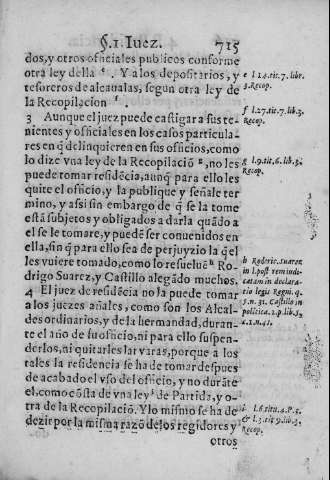 §.1. Iuez. 715
dos, y otros oficiales publicos conforme
otra ley della e. Y a los depositarios, y
tesoreros de alcaualas, segun otra ley de
la Recopilacion f.
3 Aunque el juez puede castigar a sus te-
nientes y oficiales en los casos particula-
res en q̃ delinquieren en sus oficios, como
lo dize vna ley de la Recopilaciõ g, no les
puede tomar residẽcia, aunq̃ para ello les
quite el oficio, y la publique y señale ter
mino, y assi sin embargo de q̃ se la tome
està subjetos y obligados a darla quãdo a
el se le tomare, y puedẽ ser conuenidos en
ella, sin q̃ para ello sea de perjuyzio la q̃ el
les vuiere tomado, como lo resueluẽ h Ro-
drigo Suarez, y Castillo alegãdo muchos.
4 El juez de residẽcia no la puede tomar
a los juezes añales, como son los Alcal-
des ordinarios, y de la hermandad, duran-
te el año de su oficio, ni para ello suspen-
derlos, ni quitarles las varas, porque a los
tales la residencia se ha de tomar despues
de acabado el vso del oficio, y no durãte
el, como cõsta de vna ley i de Partida, y o-
tra de la Recopilaciõ. Y lo mismo se ha de
dezir por la misma razõ de los regidores y
otros
e l.14.tit.7.libr.
3.Recop.
f l.27.tit.7.lib.3.
Recop.
g l.9.tit.6.lib.3.
Recop.
h Roderic. Suarez
in l.post rem iudi-
catam in declara-
tio legis Regni. q.
5.n.31. Castillo in
politica.2.p.lib.5.
c.1.n.41.
i l.6.titu.4.P.3.
& l.3.tit.9.lib.3.
Recop.